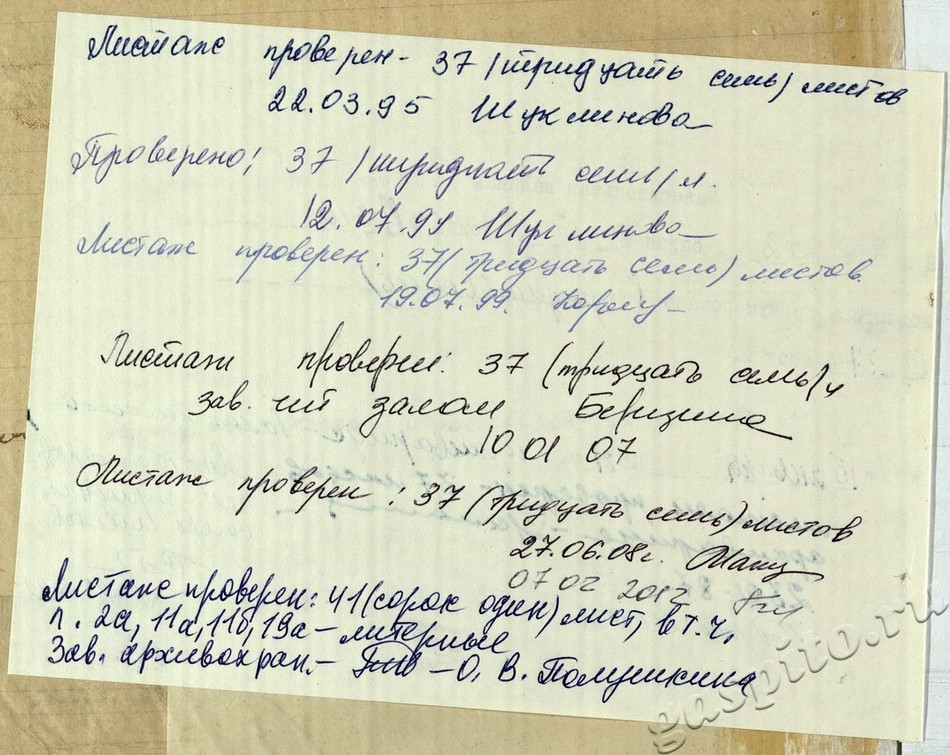 Листаж проверен - 37 /тридцать семь/ листов
22.03.95 Шуклинова
Проверено: 37 /тридцать семь/ л.
12.07.99 Шуклинова
Листаж проверен: 37 (тридцать семь) листов
19.07.99.
Листаж проверен: 37 (тридцать семь)
Зав. чит залом Берзина
10 01 07
Листаж проверен: 37 (тридцать семь) листов
27.06.08г.
07 02 2012
Листаж проверен: 41 (сорок один) лист, в т.ч.
л. 2а, 11а, 11б, 19а - литерные
Зав. архивохран. - О. В. Полушкина
gaspito.ru